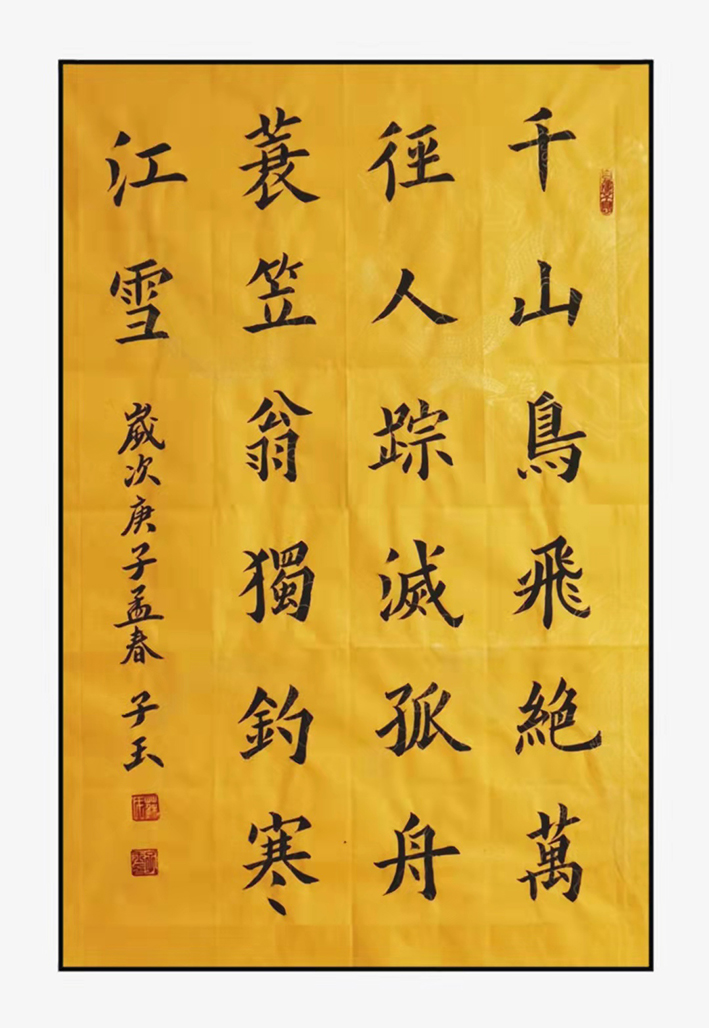 千山鳥飛絕萬
徑人踪滅孤舟
蓑笠翁獨釣寒
江雪
歲次庚子孟春 子玉